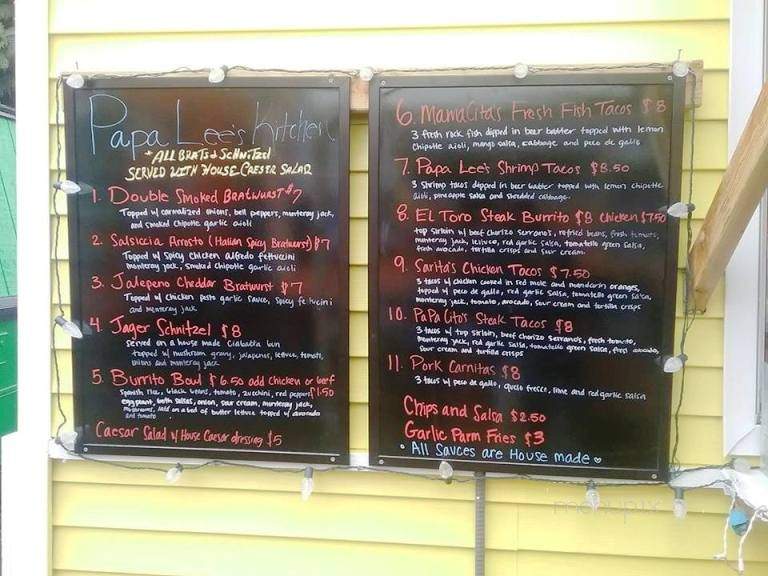 Papa Lee's Kitchen
* All Brats & Schnitzel
Served with House Caeser Salad
1. Double Smoked Bratwurst $7
Topped w/ carmalized onions, bell peppers, monterey jack,
and smoked chipotle garlic aioli
2. Salsiccia Arrosto (Italian Spicy Bratwurst) $7
Topped w/ spicy chicken alfredo fettuccini
monterey jack, smoked chipotle garlic aioli
3. Jalepeno Cheddar Bratwurst $7
Topped w/ chicken pesto garlic sauce, spicy fetucini
and monterey jack
4. Jager Schnitzel $8
Served on a house made Ciabatta bun
topped w/ mushroom gravy, jalapenos, lettuce, tomato,
onions and monterey jack
5. Burrito Bowl $6.50 add chicken or beef
$1.50
Spanish rice, black beans, tomato, zucchini, red peppers
eggplant, both salsas, onion, sour cream, monterey jack,
mushrooms, laid on a bed of butter lettuce topped w/ avocado
and tomato
Caesar Salad w/ House Caesar dressing $5
6. MamaCita's Fresh Fish Tacos $8
3 fresh rock fish dipped in beer batter topped with lemon
chipotle aioli, mango salsa, cabbage and peco de gallo
7. Papa Lee's Shrimp Tacos $8.50
3 shrimp tacos dipped in beer batter topped with lemon chipotle
aioli, pineapple salsa and shredded cabbage.
8. El Toro Steak Burrito $8 Chicken $7.50
top sirloin w/ beef chorizo serrano's, refried beans, fresh tomato,
monterey jack, lettuce, red garlic salsa, tomatello green salsa,
fresh avocado, tortilla crisps and sour cream.
9. Sarita's Chicken Tacos $7.50
3 tacos w/ chicken cooked in red mole and mandarin oranges,
topped w/ peco de gallo, red garlic salsa, tomatello green salsa,
monterey jack, tomato, avocado, sour cream and tortilla crisps
10. PaPa Cito's Steak Tacos $8
3 tacos w/ top sirloin, beef chorizo serrano's, fresh tomato,
monterey jack, red garlic salsa, tomatello green salsa, fresh avocado,
sour cream and tortilla crisps
11. Pork Carnitas $8
3 tacos w/ peco de gallo, queso fresco, lime and red garlic salsa
Chips and Salsa $2.50
Garlic Parm Fries $3
* All Sauces are House made
menupix